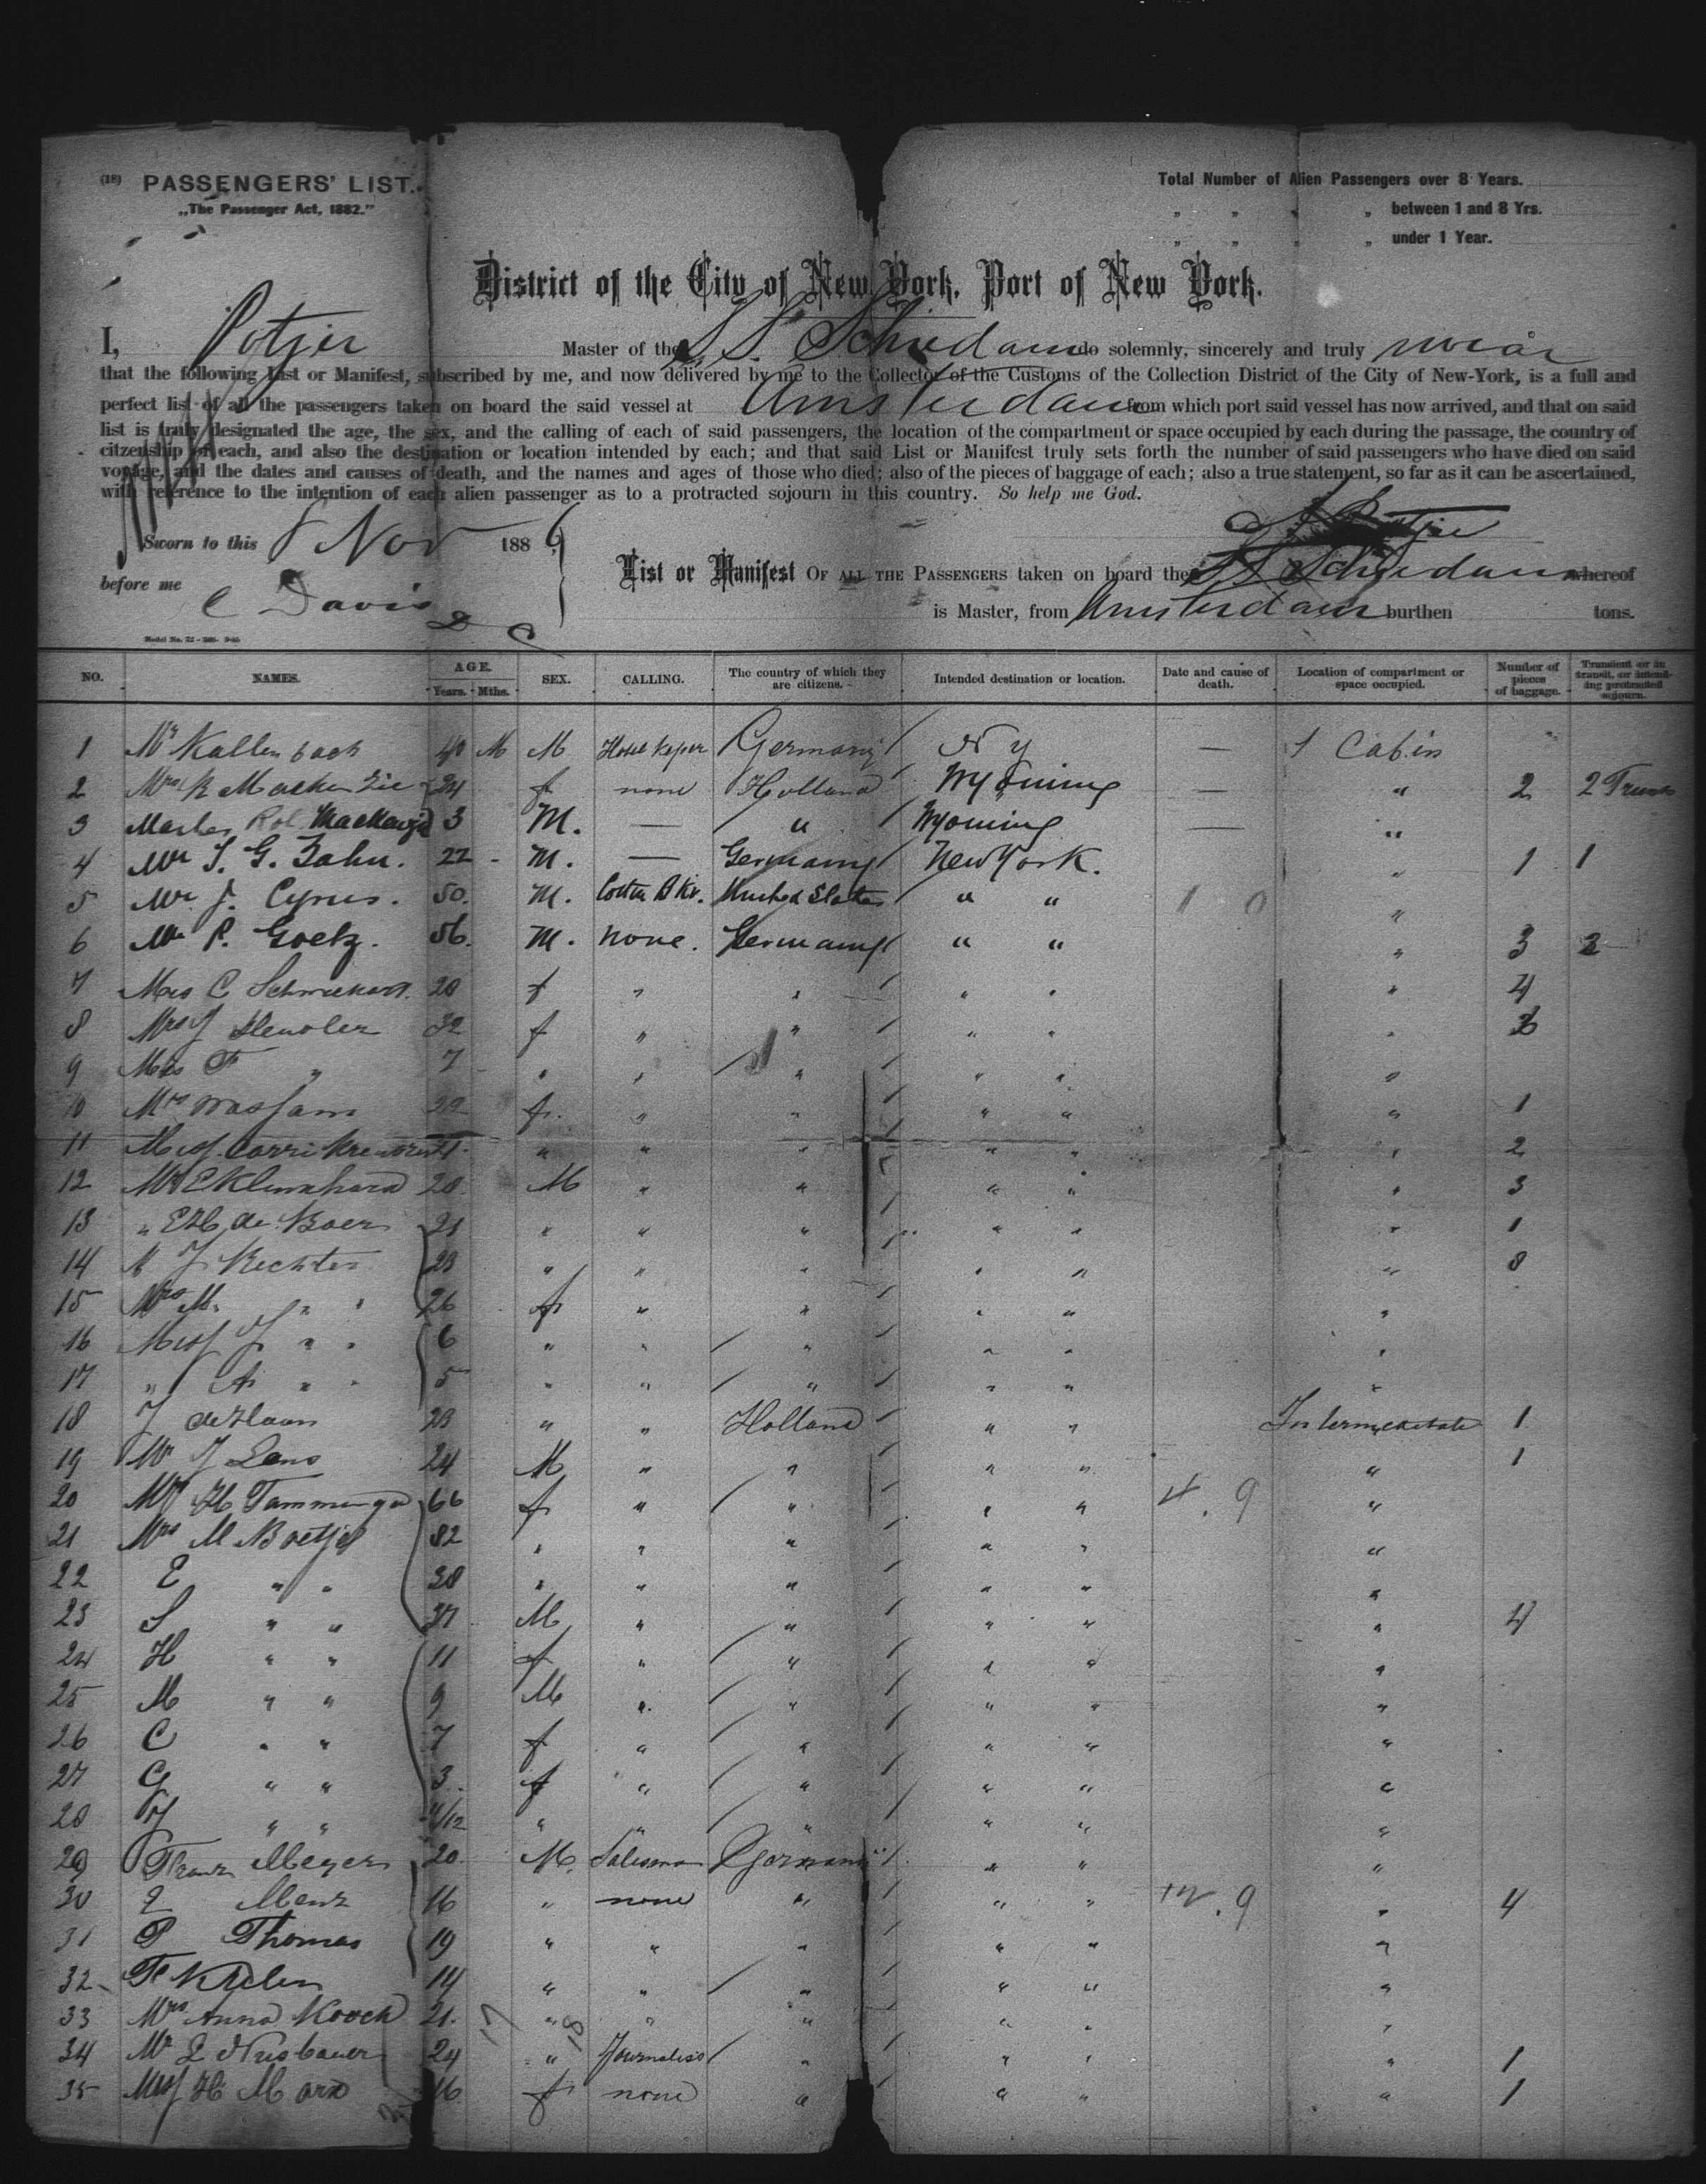 (18) PASSENGERS' LIST.
„The Passenger Act, 1882."
Total Number of Alien Passengers over 8 Years.
„ „ „ „ between 1 and 8 Yrs.
„ „ „ „ under 1 Year.
District of the City of New York, Port of New York.
I, Potjer Master of the S.S. Schiedam do solemnly, sincerely and truly swear
that the following List or Manifest, subscribed by me, and now delivered by me to the Collector of the Customs of the Collection District of the City of New-York, is a full and
perfect list of all the passengers taken on board the said vessel at Amsterdam from which port said vessel has now arrived, and that on said
list is truly designated the age, the sex, and the calling of each of said passengers, the location of the compartment or space occupied by each during the passage, the country of
citzenship of each, and also the destination or location intended by each; and that said List or Manifest truly sets forth the number of said passengers who have died on said
voyage, and the dates and causes of death, and the names and ages of those who died; also of the pieces of baggage of each; also a true statement, so far as it can be ascertained,
with reference to the intention of each alien passenger as to a protracted sojourn in this country. So help me God.
Potjer
Sworn to this 8 Nov 1886
before me C Davis
D C
List or Manifest OF ALL THE PASSENGERS taken on board the S S Schiedam whereof
is Master, from Amsterdam burthen tons.
NO. NAMES. AGE. Years. Mths. SEX. CALLING. The country of which they are citizens. Intended destination or location. Date and cause of death. Location of compartment or space occupied. Number of pieces of baggage. Transient or in transit, or intending protracted sojourn.
1 Mr Kallenbach 40 M M Hotel Keper Germany / N Y — 1 Cabin "
2 Mrs R Mackenzie 24 f none Holland / Wyoming — " 2 2 Trunks
3 Master Rol. MacKenzie 3 M. — / " / Wyoming — "
4 Mr J. G. Zahn. 22 - M. — Germany / New York. " 1 1
5 Mr J. Cyrus. 50. M. United States " " 1 0 "
6 Mr P. Goetz. 56. M. none. Germany / " " " 3 2
7 Mrs C 28 f " " / " " " 4
8 Mrs J 32 f " " / " " "
9 F " 7 " " / " / " " "
10 Mrs Wassam f. " " / " " " 1
11 Miss Carri " " " / " " " 2
12 Mr E Kleinhard 28. M " " / " " " 3
13 " E H de Boer 21 " " " / " " " 1
14 " J Rechter 23 " " " " " " 8
15 Mrs M. " " 26 f " " / " " "
16 Miss J " " 6 " " / " / " " "
17 " A " " 5 " " / " / " " "
18 J de Haan 23 " " Holland / " " Intermediate 1
19 Mr J Lans 24 M " " / " " " 1
20 Mrs H Tamminga 66 f " / " / " " 4. 9 "
21 Mrs M Boetjer 32 " " " / " " "
22 E " " 38 " " " / " " "
23 S " " 37 M " " / " " " 4
24 H " " 11 f " / " / " " "
25 M " " 9 M " / " / " " "
26 C " " 7 f " / " / " " "
27 G " " 3. f " / " / " " "
28 J " " 4/12 " " / " / " " "
29 Franz Meyer 20 M. Salesman Germany / " " "
30 Menz 16 " none " / " " 12. 9 " 4
31 P Thomas 19 " " " / " " "
32 14 " " / " / " " "
33 Mrs Anna Kooch 21. 17 " 18 " " " " "
34 Mr L Nusbauer 24 " Journalist / " / " " " 1
35 Miss H Marx 16 f none " " " " 1